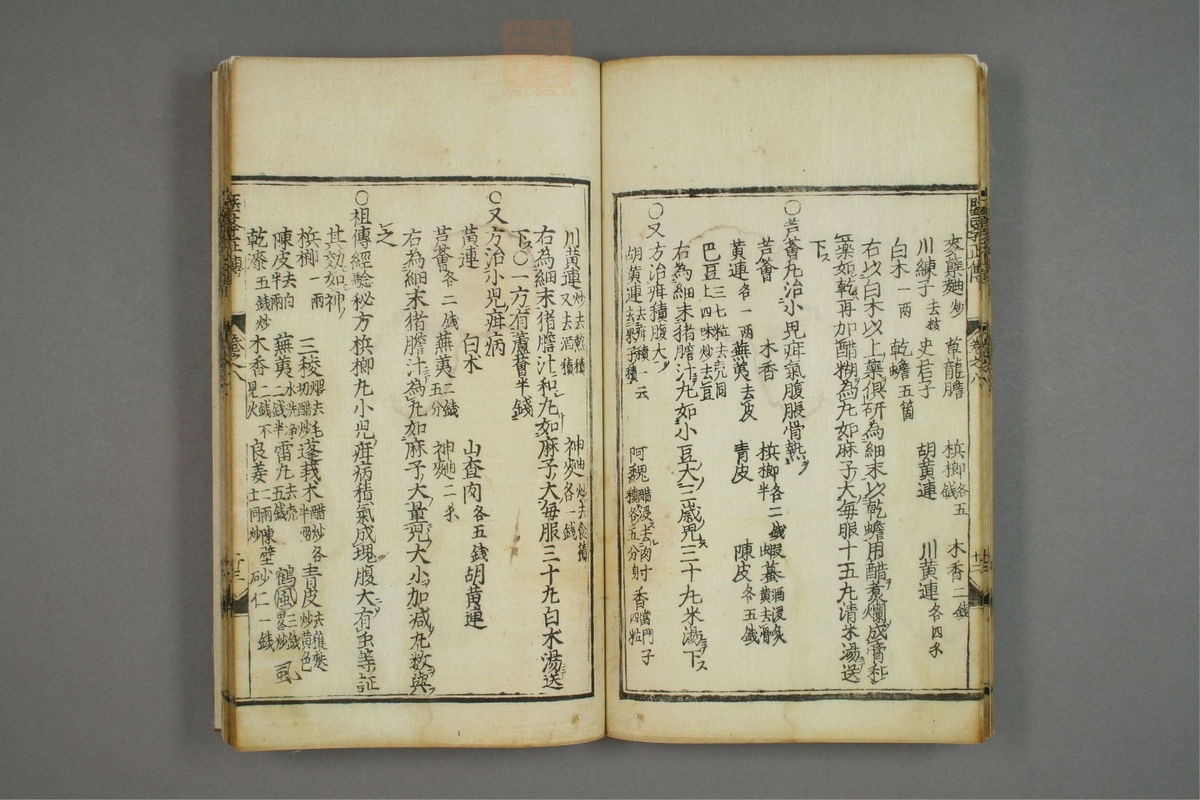 麥糵麯炒 草龍膽 梹榔各五錢 木香二錢
川練子去核 史君子 胡黄連 川黄連各四錢
白朮一兩 乾蟾五箇
右以白朮以上藥俱研為細末以乾蟾用醋煑爛成膏和
藥如乾再加醋糊為丸如麻子大每服十五丸清米湯送
下
〇芦薈丸治小児疳氣腹脹骨熱
芦薈 木香 梹榔各二錢半 蝦蟇酒浸炙黄去骨
黄連各一兩 蕪荑去皮 青皮 陳皮各五錢
巴豆三七粒去壳同上四味炒去豆
右為細末猪膽汁丸如小豆大三歲児三十丸米湯下
〇又方治疳積腹大
胡黄連去果子積一云去痞積 阿魏醋浸去肉積各五分 射香四粒當門子
川黄連炒去熱積又去酒積 神麯炒去食積各一錢
右為細末猪膽汁和丸如麻子大每服三十丸白朮湯送
下〇一方有蘆薈半錢
〇又方治小児疳病
黄連 白朮 山查肉各五錢 胡黄連
芦薈各二錢 蕪荑二錢五分 神麯二錢
右為細末猪膽汁為丸如麻子大量児大小加减丸数與
之
〇祖傳經驗秘方梹榔丸小児疳病積氣成塊腹大有虫等証
其効如神
梹榔一兩 三稜煨去毛切醋炒 蓬莪朮醋炒各半兩 青皮去穰麸炒黄色
陳皮去白半兩 蕪荑水洗净二錢半 雷丸去壳五錢 鶴虱畧炒三錢 虱
乾漆五錢炒 木香二錢不見火 良姜二兩陳壁土同炒 砂仁一錢